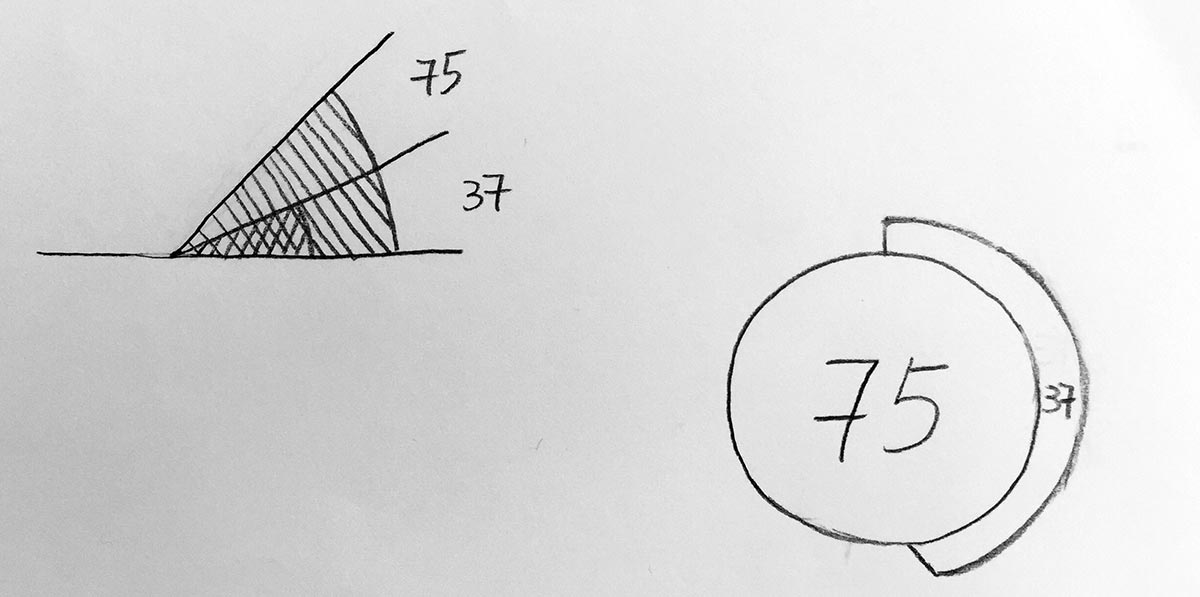 75
37
75
37